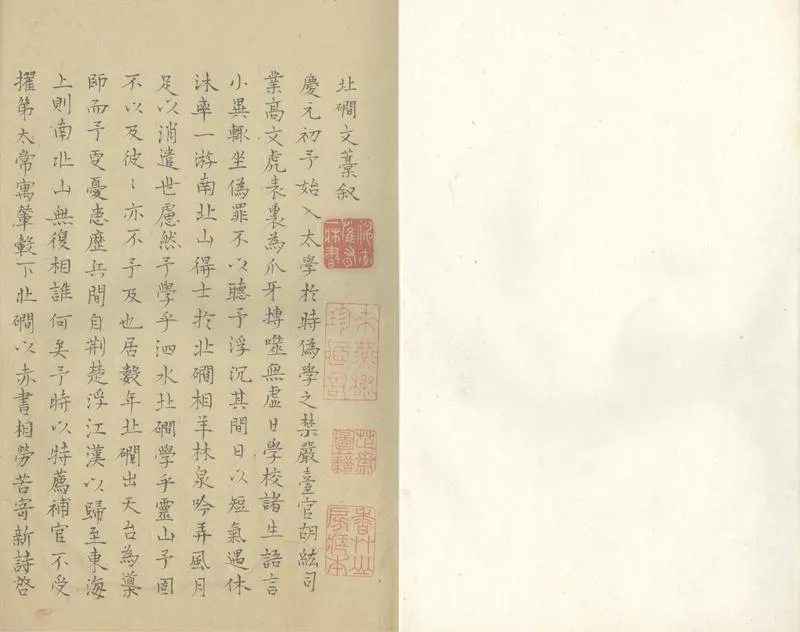 北磵文藁叙
慶元初予始入太學於時偽學之禁嚴臺官胡紘司
業高文虎表裏為爪牙搏噬無虛日學校諸生語言
小異輒坐偽罪不以聽予浮沉其間日以短氣遇休
沐率一游南北山得士於北磵相羊林泉吟弄風月
足以消遣世慮然予學乎泗水北磵學乎靈山予固
不以及彼〻亦不予及也居數年北磵出天台為導
師而予更憂患歷兵間自荆楚浮江漢以歸至東海
上則南北山無復相誰何矣予時以特薦補官不受
擢第太常寓輦轂下北磵以赤書相勞苦寄新詩啓
芷齋圖籍